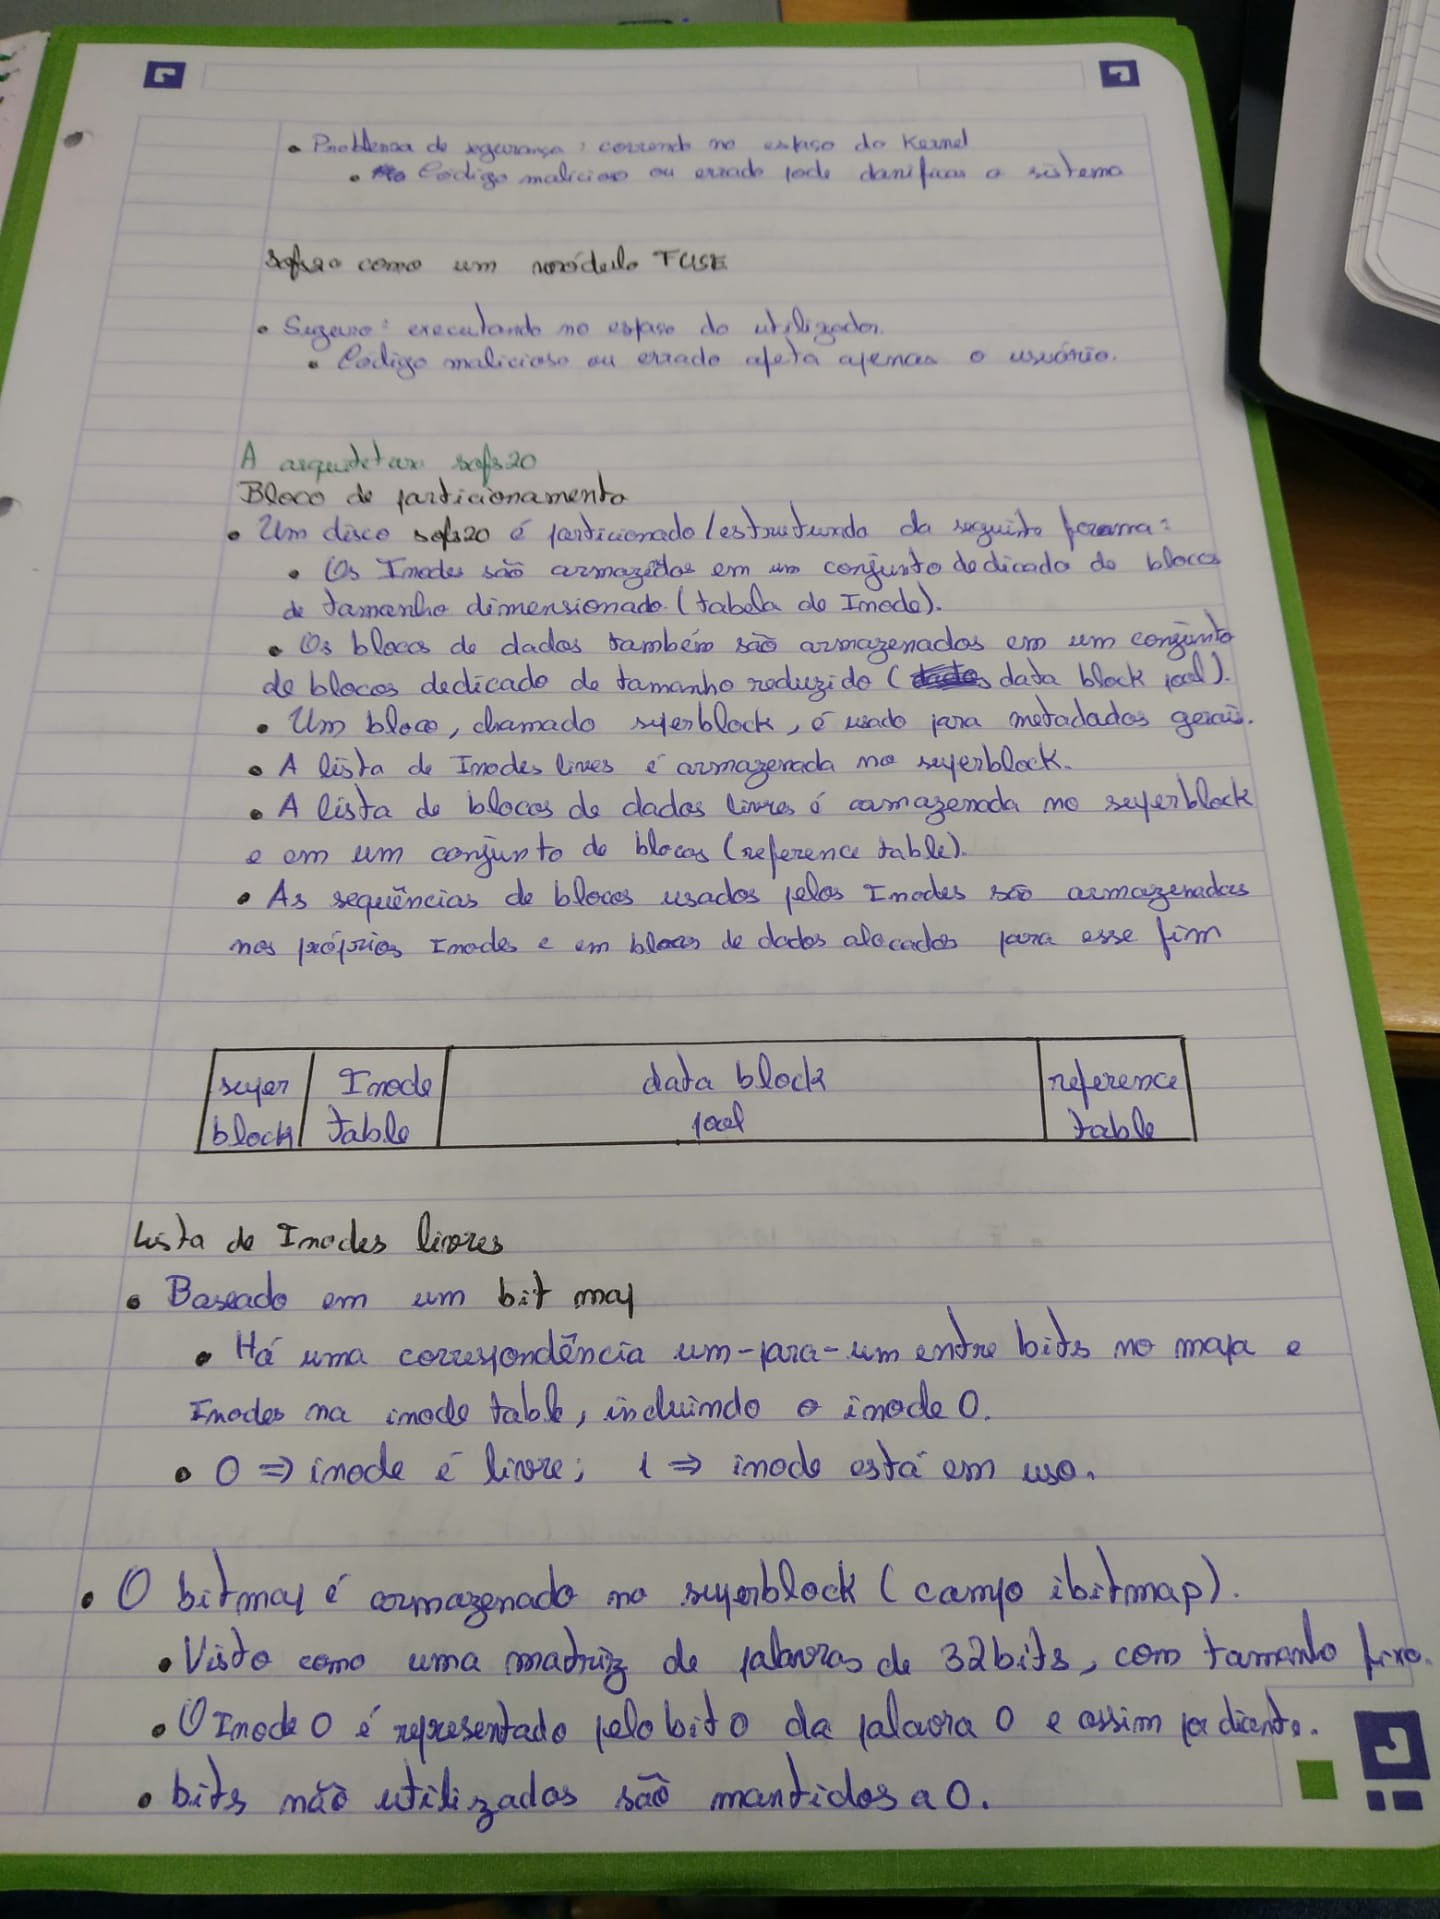 • Problema de segurança: correndo no espaço do Kernel
• Código malicioso ou errado pode danificar o sistema
sofs20 como um módulo FUSE
• Seguro: executando no espaço do utilizador.
• Código malicioso ou errado afeta apenas o usuário.
A arquitetura sofs20
Bloco de particionamento
• Um disco sofs20 é particionado/estruturado da seguinte forma:
• Os Inodes são armazedos em um conjunto dedicado de blocos
de tamanho dimensionado. (tabela de Inode).
• Os blocos de dados também são armazenados em um conjunto
de blocos dedicado de tamanho reduzido ( data block pool).
• Um bloco, chamado superblock, é usado para metadados gerais.
• A lista de Inodes livres é armazenada no superblock.
• A lista de blocos de dados livres é armazenada no superblock
e em um conjunto de blocos (reference table).
• As sequências de blocos usados pelos Inodes são armazenadas
nos próprios Inodes e em blocos de dados alocados para esse fim
super block
Inode table
data block pool
reference table
Lista de Inodes livres
• Baseado em um bit map
• Há uma correspondência um-para-um entre bits no mapa e
Inodes na inode table, incluindo o inode 0.
• 0 => inode é livre; 1 => inode está em uso.
• O bitmap é armazenado no superblock (campo ibitmap).
• Visto como uma matriz de palavras de 32bits, com tamanho fixo.
• O Inode 0 é representado pelo bit 0 da palavra 0 e assim por diante.
• bits não utilizados são mantidos a 0.